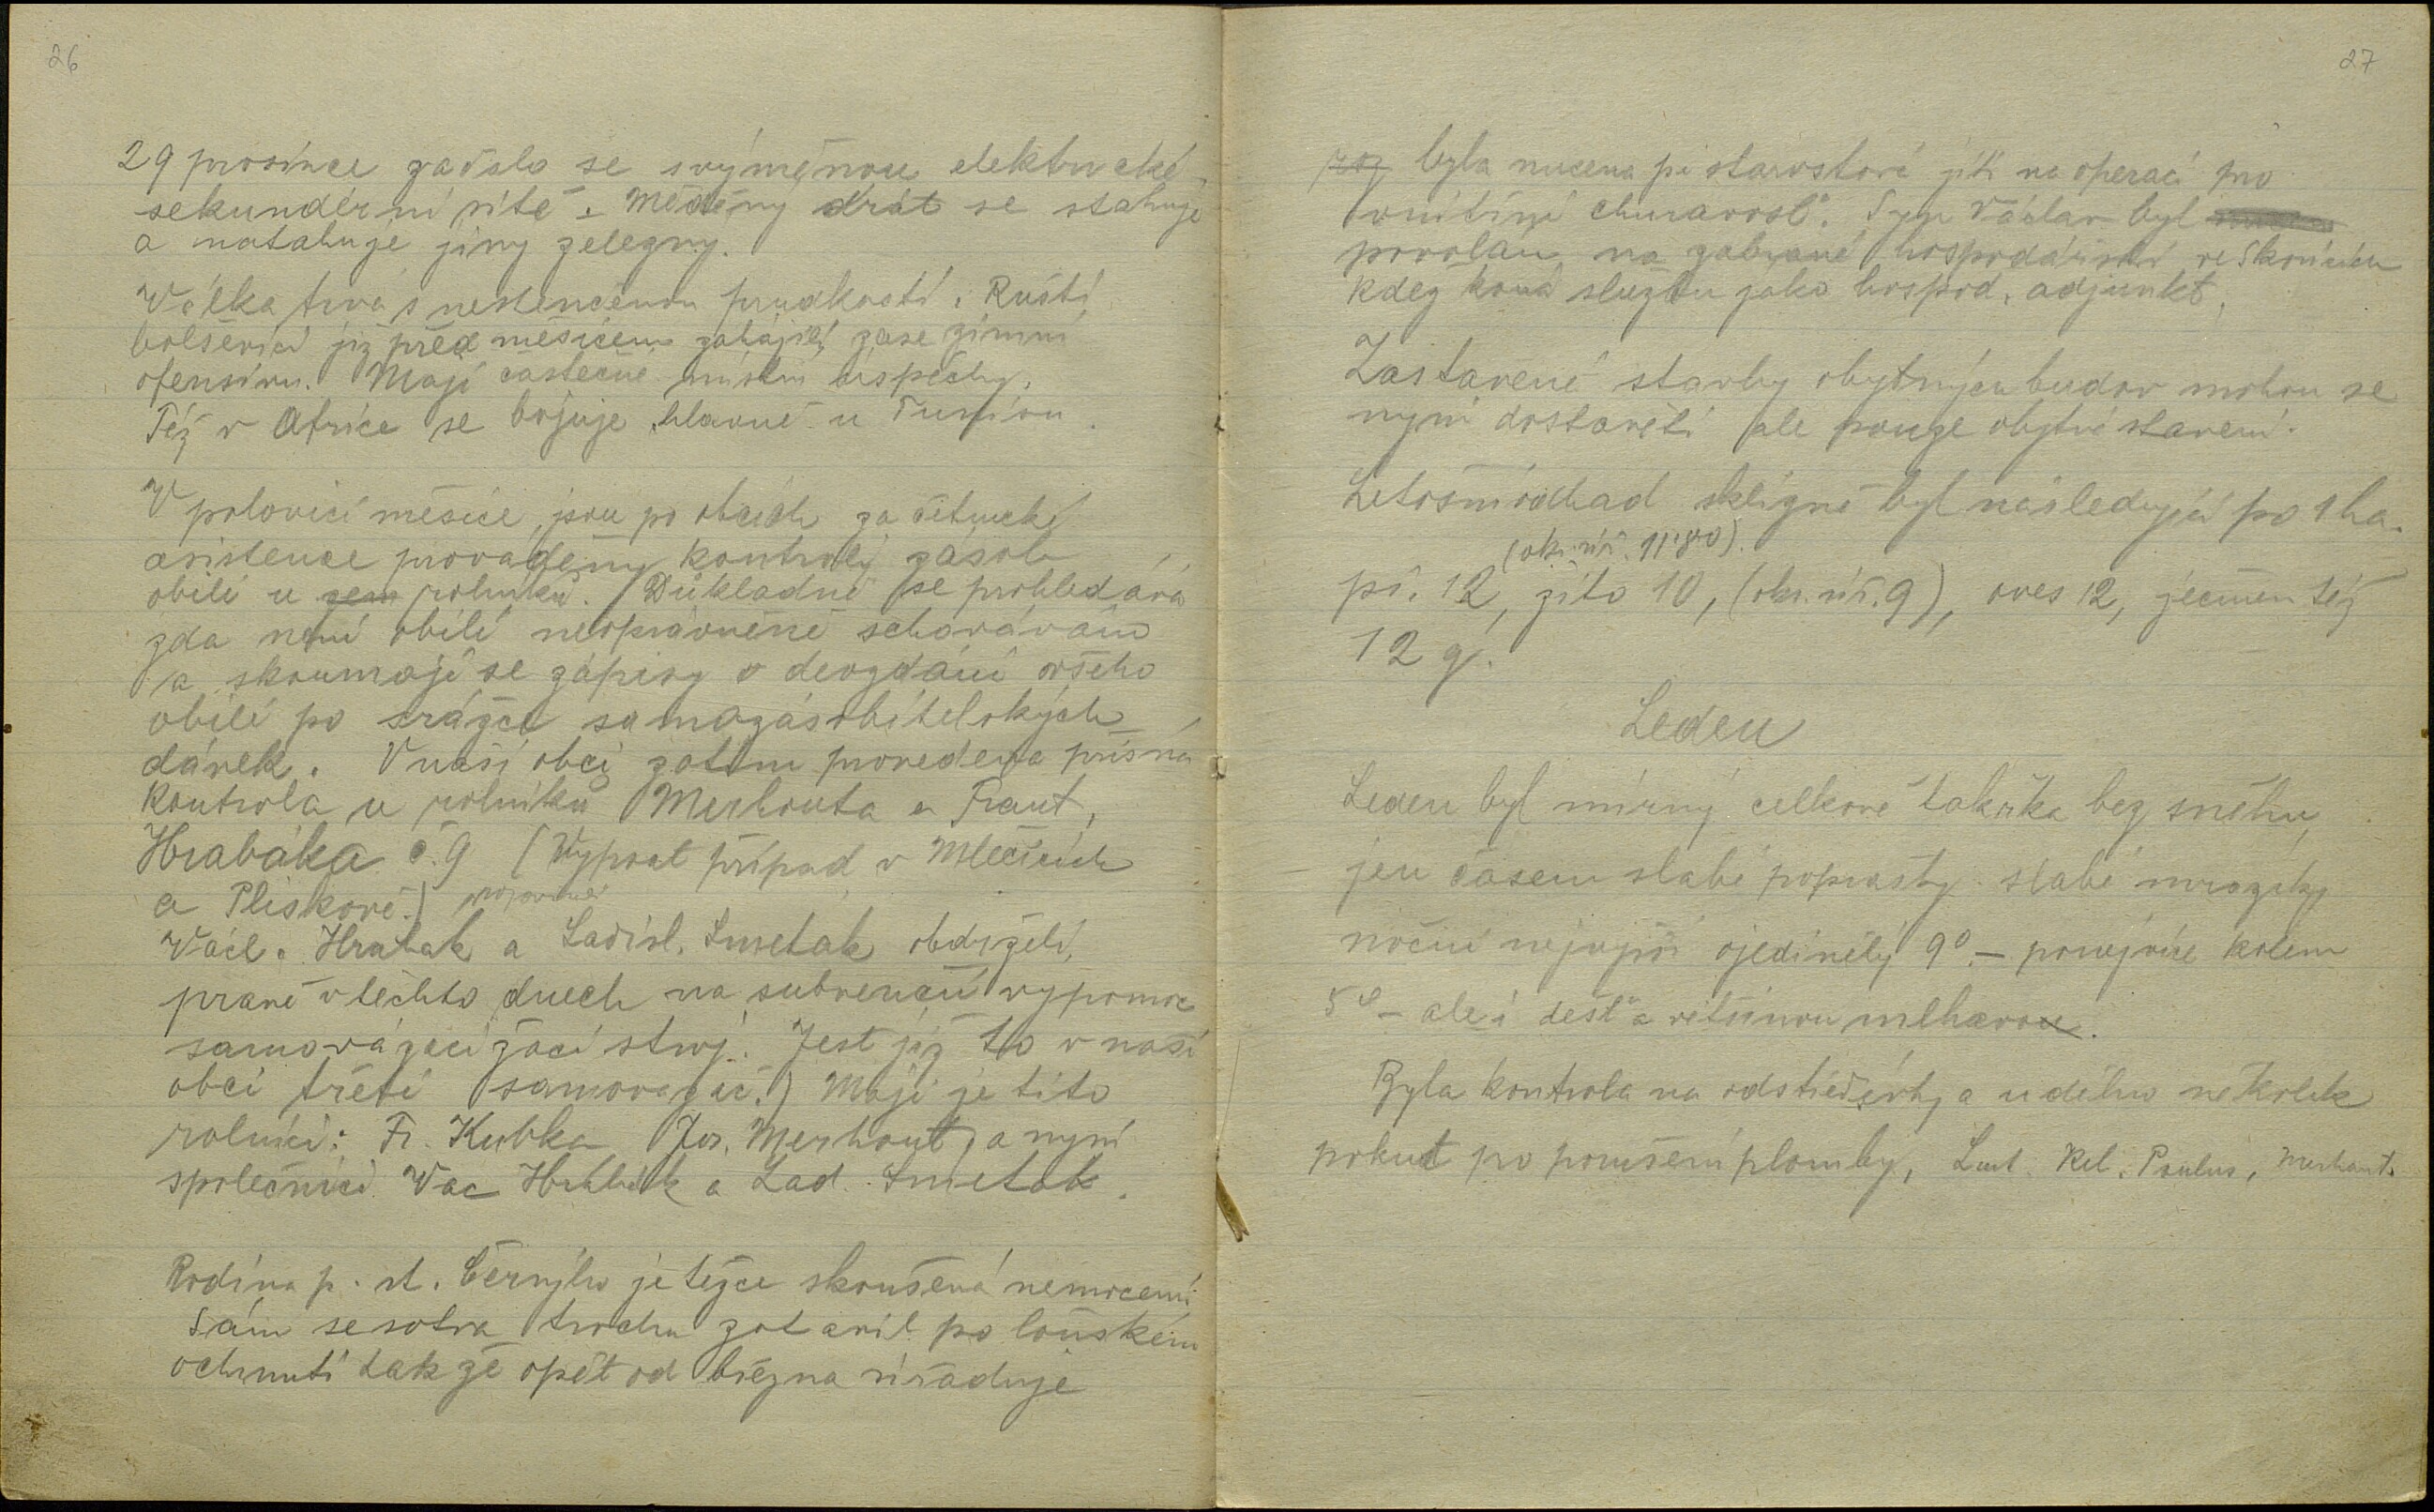 26
29 prosince začalo se svýměnou elektrické
sekundérní sítě. Měděný drát se stahuje
a natahuje jiny železny.
Válka trvá s nestenčenou prudkostí. Ruští
bolševici již před měsícem zahájili zase zimní
ofensivu. Mají částečné místní úspěchy.
Též v Africe se bojuje hlavně u Tunisu.
V polovici měsíce, jsou po obcích za četnické
asistence prováděny kontroly zásob
obilí u rolníků. Důkladně se prohledává
zda není obilí neoprávněně schováváno
a skoumají se zápisy o devzdání všeho
obilí po srážce samozásobitelských
dávek. V naší obci zatím provedena přísná
kontrola u rolníků Merhouta a Frant.
Hrabáka č. 9 (Vypsat případ v Mlečicích
a Pliskově.)
Václ. Hrabak a Ladisl. Smetak obdrželi
pravě v těchto dnech na subvenční vypomoc
samovázací žací stroj. Jest již to v naší
obci třetí samovazač.) Mají je tito
rolníci: Fr. Kubka Jos. Merhout, a nyní
společníci Vac Hrabák a Lad. Smetak.
Rodina p. st. Černýho je težce skoušená nemocemi
Sám se sotva trochu zotavil po loňském
ochrnutí tak že opět od března úřaduje
27
byla nucena pí starostová jíti na operaci pro
vnitřní churavost. Syn Václav byl
povolán na zabrané hospodářství ve Skoru
kdež koná službu jako hospod. adjunkt.
Zastavené stavby obytných budov mohou se
nyní dostavěti ale pouze obytné stavení.
Letošní odhad sklizně byl následující po 1 ha.
(okr. úř. 11.80).
pš. 12, žito 10, (okr. úř. 9), oves 12, ječmen též
12 q.
Leden
Leden byl mírný celkově takřka bez sněhu,
jen časem slabé poprašky slabé mrazíky
noční nejvyšší ojedinělý 9° – ponejvíce kolem
5° – ale i dešť a většinou mlhavo.
Byla kontrola na odstředivky a uděleno několik
pokut po porušení plomby, Smt. Kel. Paulus, Merhout.